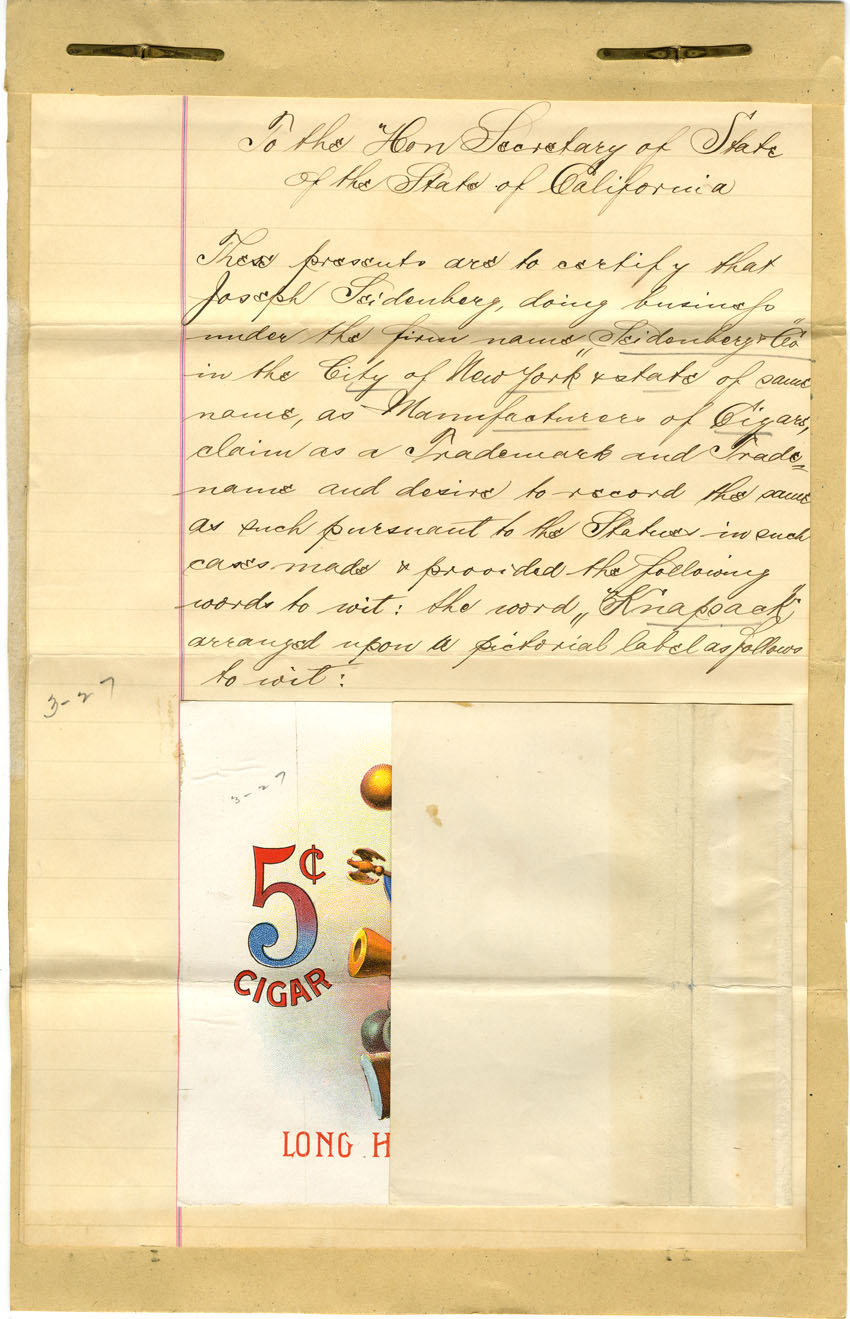 To the Hon Secretary of State
of the State of California
These presents are to certify that
Joseph Seidenberg, doing business
under the firm name „Seidenberg & Co"
in the City of New York & state of same
name, as Manufacturers of Cigars,
claim as a Trademark and Trade=
name and desire to record the same
as such pursuant to the Statues in such
cases made & provided the following
words to wit: the word „Knapsack"
arranged upon a pictorial label as follows
to wit:
3-27
3-27
5¢
CIGAR
LONG H